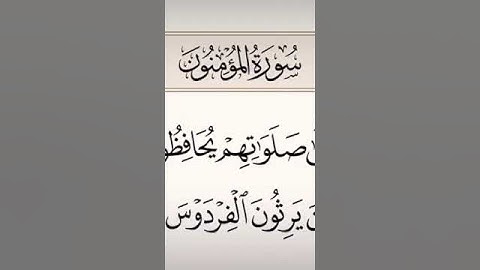 سُورَةُ المُؤْمِنُونَ
صَلَوَٰتِهِمْ يُحَافِظُو
يَرِثُونَ ٱلْفِرْدَوْسَ